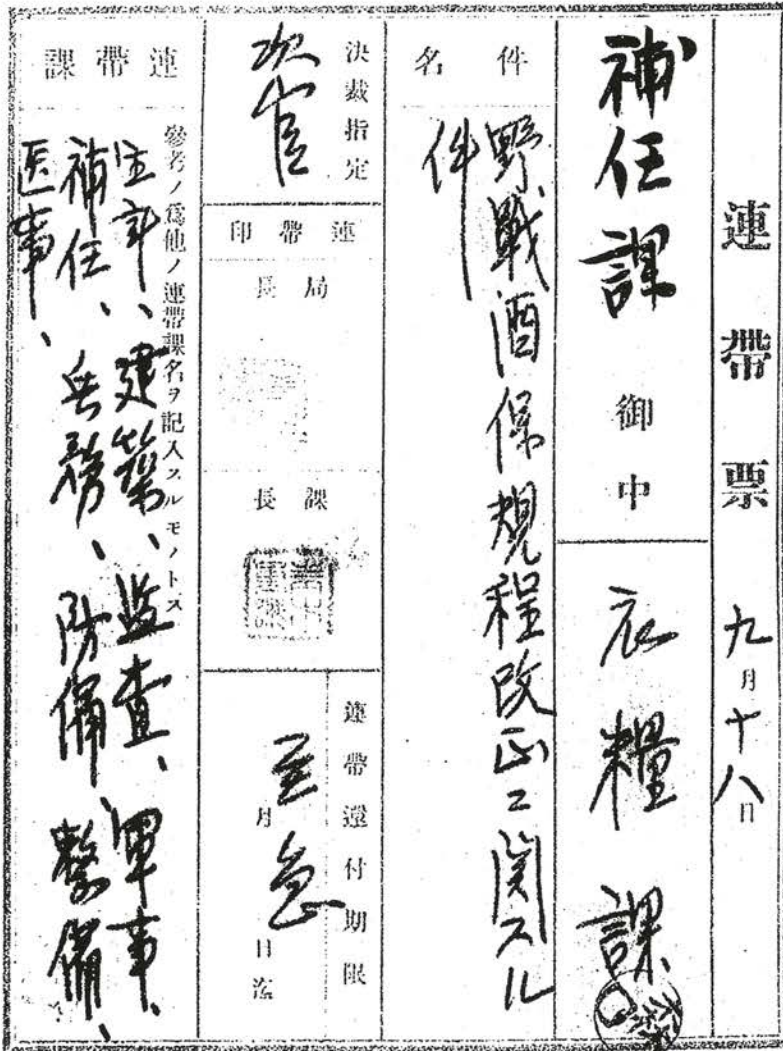 連帶票 九月十八日
補任課 御中
衣糧課
件名
野戰酒保規程改正ニ関スル
件
決裁指定
次官
連帶印
局長
課長
連帶還付期限
至急
月 日迄
連帶課
參考ノ爲他ノ連帶課名ヲ記入スルモノトス
主計、建築、監査、軍事、
補任、兵務、防備、整備、
医事、